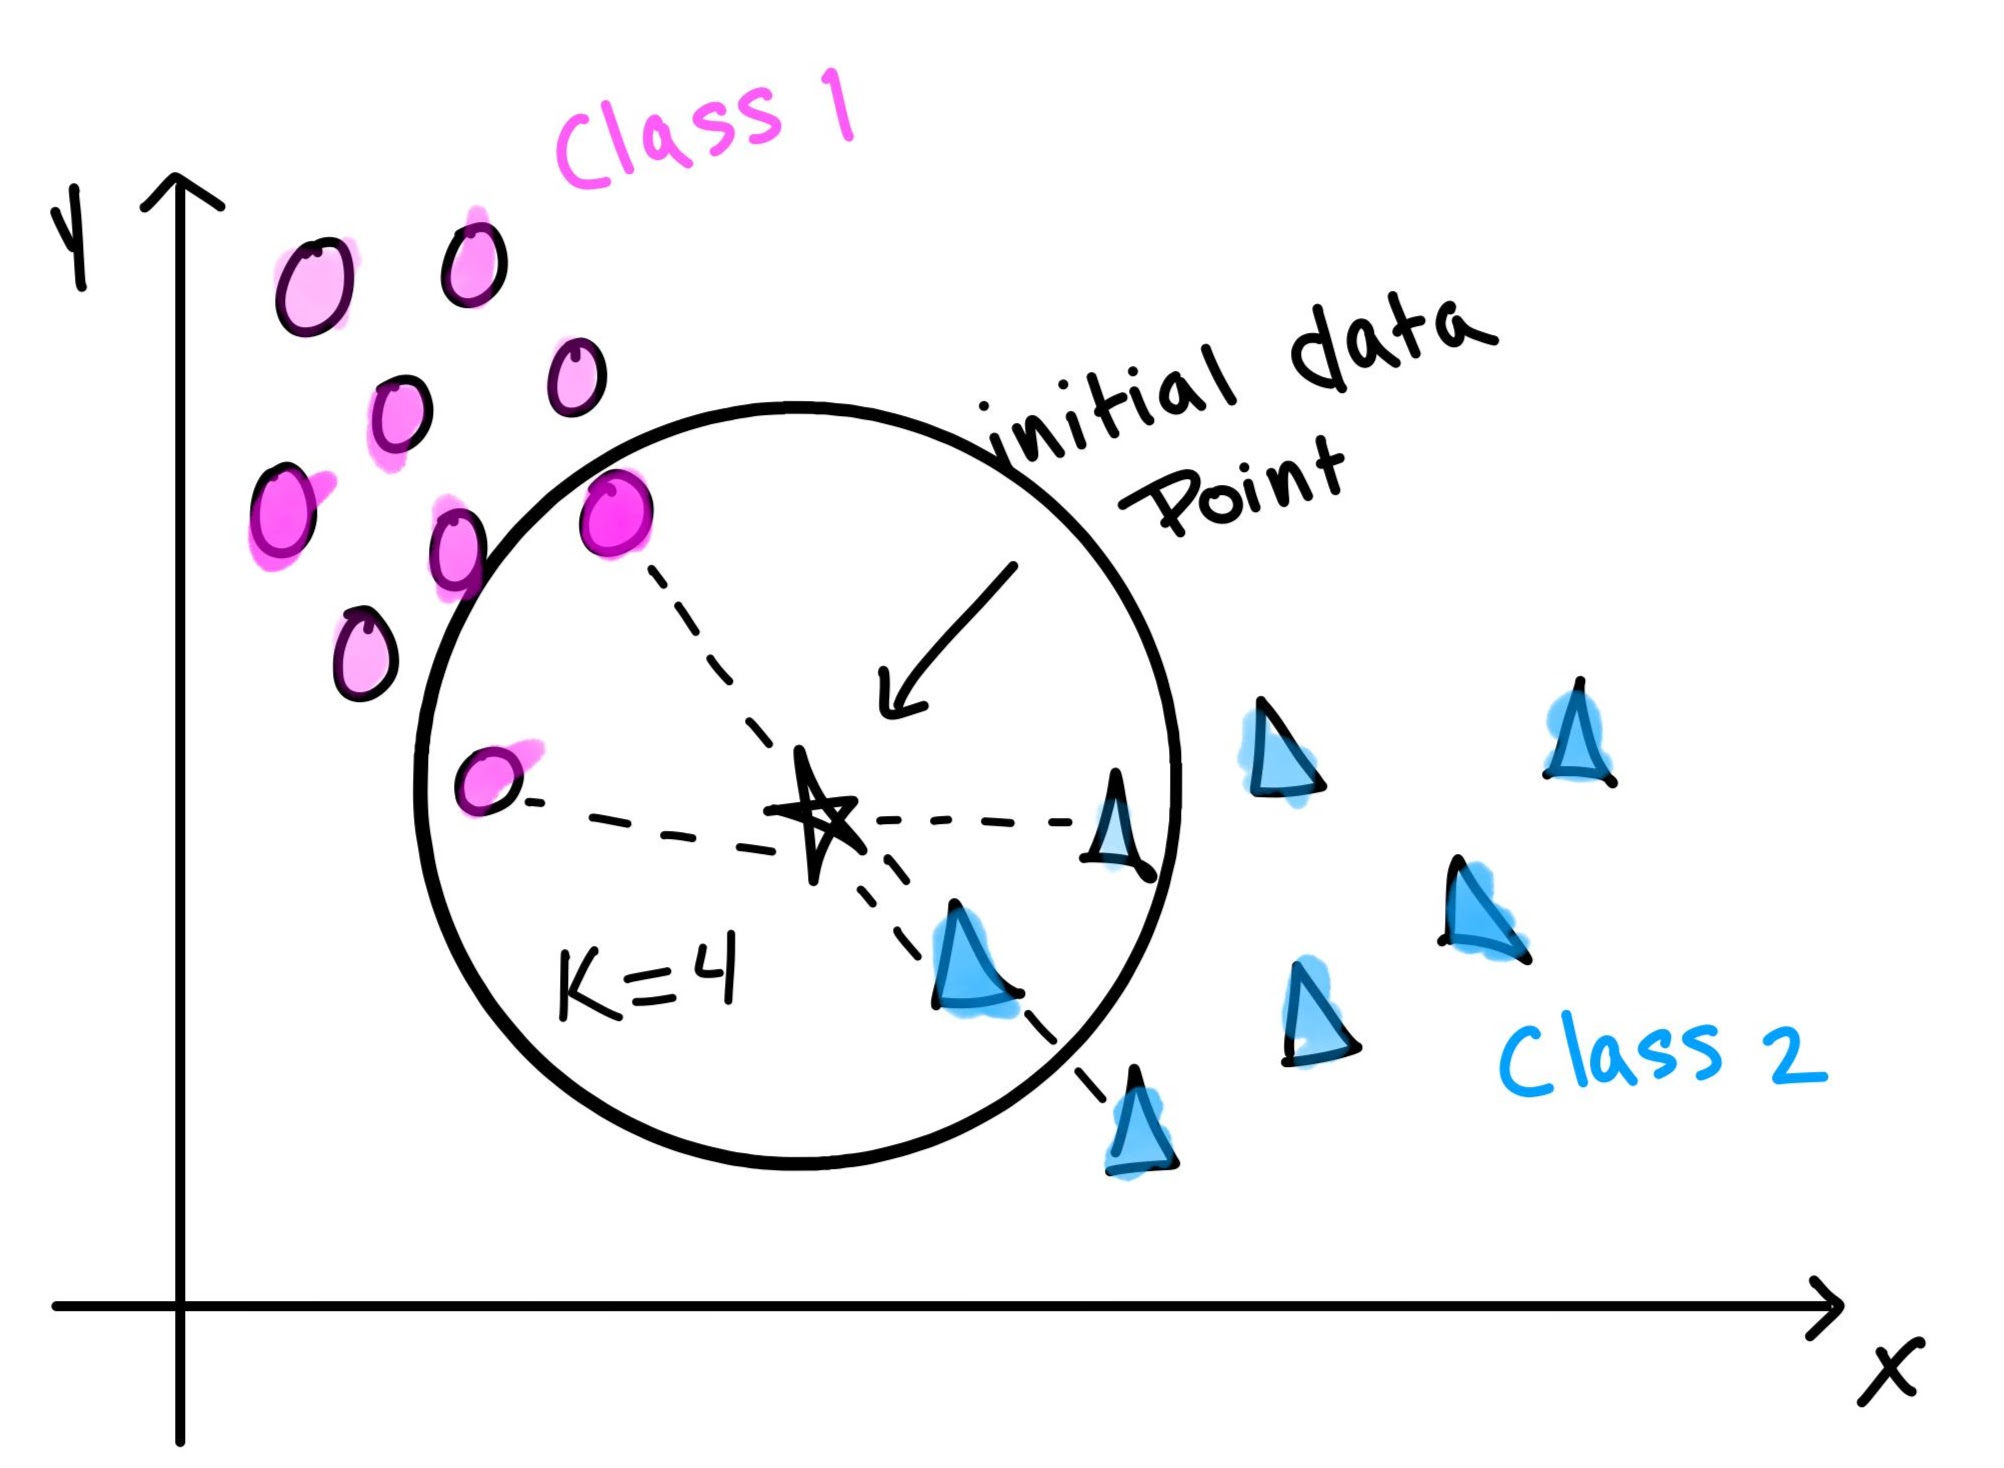 Class 1
y
initial data
Point
K=4
Class 2
x